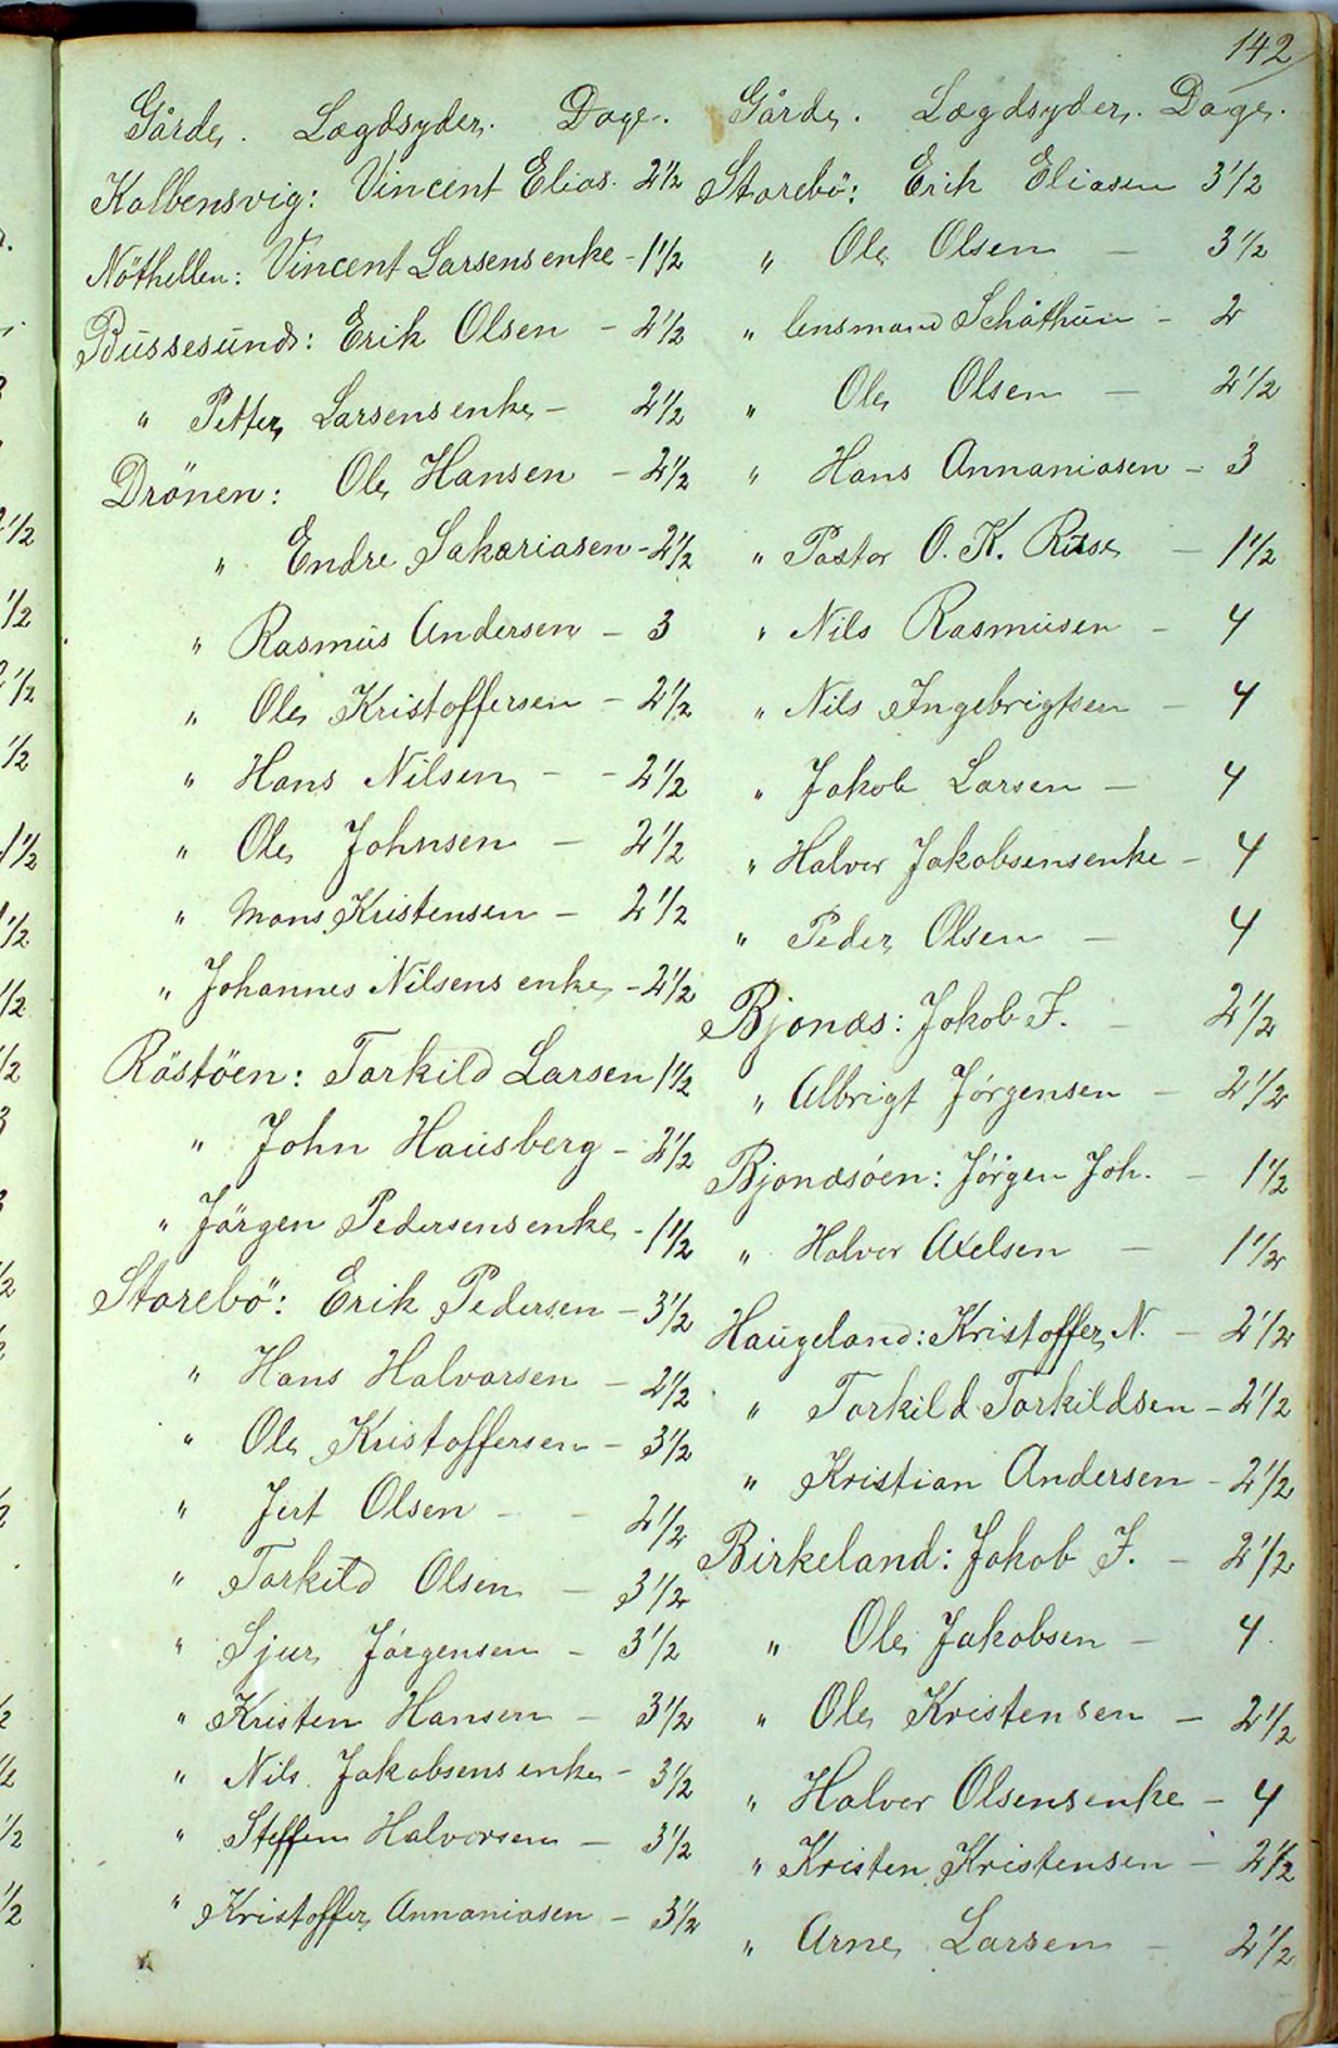 142
Gårde. Lægdsyder. Dage.
Kalbensvig: Vincent Elias. 2½
Nöthellen: Vincent Larsens enke - 1½
Bussesund: Erik Olsen - 2½
" Petter Larsens enke - 2½
Drönen: Ole Hansen - 2½
" Endre Sakariasen - 2½
" Rasmus Andersen - 3
" Ole Kristoffersen - 2½
" Hans Nilsen - - 2½
" Ole Johnsen - 2½
" Mons Kristensen - 2½
" Johannes Nilsens enke - 2½
Röstöen: Torkild Larsen 1½
" John Hausberg - 2½
" Jörgen Pedersens enke - 1½
Storebö: Erik Pedersen - 3½
" Hans Halvorsen - 2½
" Ole Kristoffersen - 3½
" Jert Olsen - - 2½
" Torkild Olsen - 3½
" Sjur Jörgensen - 3½
" Kristen Hansen - 3½
" Nils Jakobsens enke - 3½
" Steffen Halvorsen - 3½
" Kristoffer Annaniasen - 3½
Gårde. Lægdsyder. Dage.
Storebö: Erik Eliasen 3½
" Ole Olsen - 3½
" lensmand Schåthun - 2
" Ole Olsen - 2½
" Hans Annaniasen - 3
" Pastor O. K. - 1½
" Nils Rasmusen - 4
" Nils Ingebrigtsen - 4
" Jakob Larsen - 4
" Halvor Jakobsens enke - 4
" Peder Olsen - 4
Bjonæs: Jakob J. - 2½
" Albrigt Jörgensen - 2½
Bjonæsöen: Jörgen Joh. - 1½
" Halvor Axelsen - 1½
Haugeland: Kristoffer N. - 2½
" Torkild Torkildsen - 2½
" Kristian Andersen - 2½
Birkeland: Jakob J. - 2½
" Ole Jakobsen - 4
" Ole Kristensen - 2½
" Halvor Olsens enke - 4
" Kristen Kristensen - 2½
" Arne Larsen - 2½